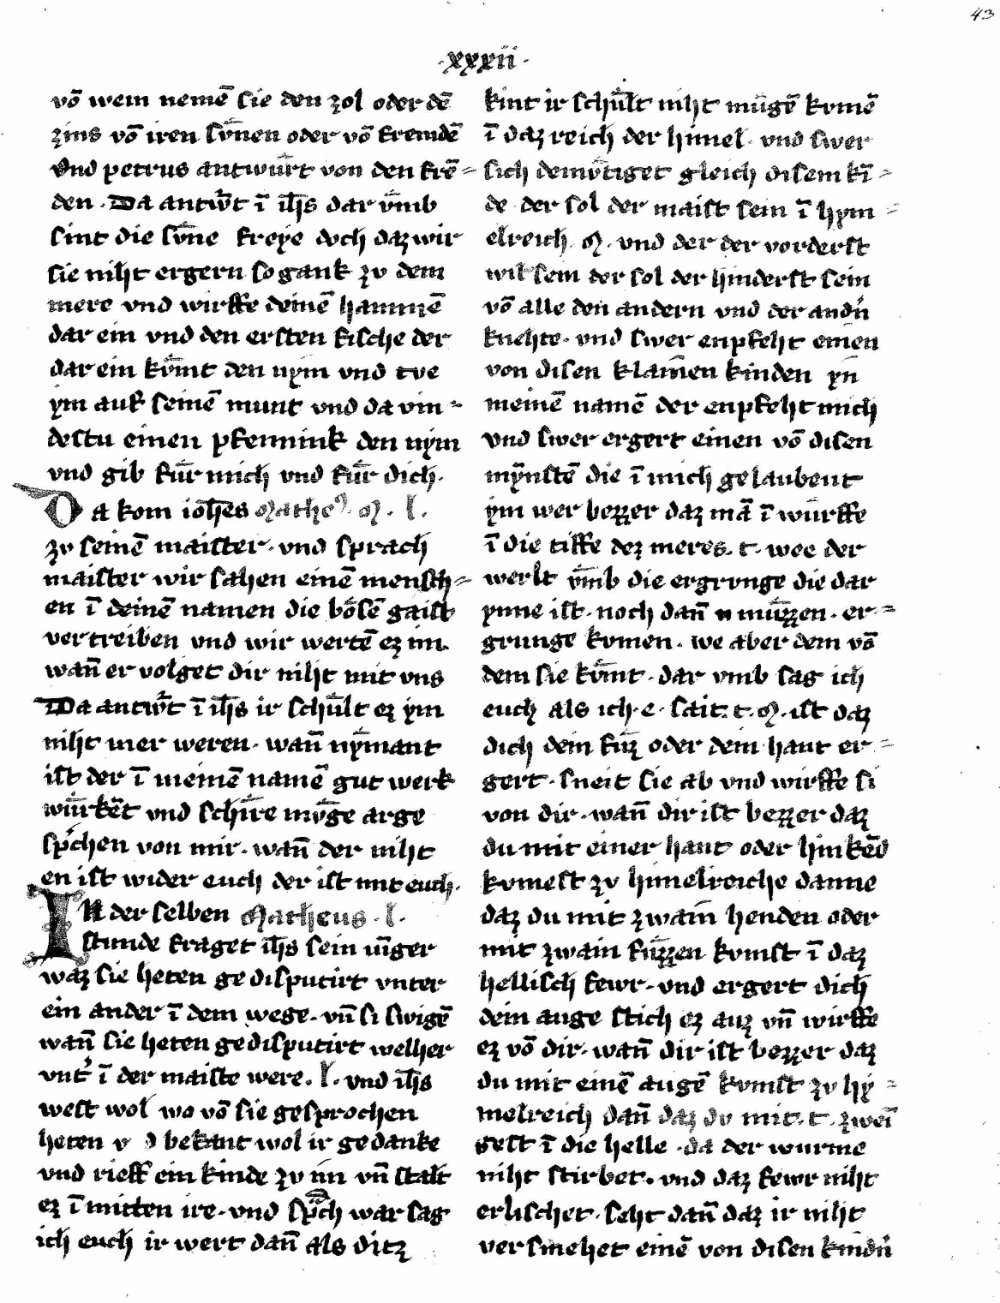 43
·xxxii·
vō wem nemē sie den zol oder dē
zins vō iren sv̄nen oder vō fremdē
Vnd petrus antwuͤrt von den frē=
den · Da antwͦt ī ih̄s dar vͤmb
sint die svͤne freye doch daz wir
sie niht ergern so gank zv dem
mere vnd wirffe deinē hammē
dar ein vnd den ersten fische der
dar ein kvͤmt den nym vnd tve
ym auf seinē munt vnd da vin=
destu einen pfennink den nym
vnd gib fuͤr mich vnd fuͤr dich·
Da kom ioh̄es Matheꝰ· M· l·
zv seinē maister· vnd sprach
maister wir sahen einē mensch=
en ī deinē namen die bösē gaist
vertreiben vnd wir wertē ez im·
wan̄ er volget dir niht mit vns
Da antwͦt ī ih̄s ir schuͤlt ez ym
niht mer weren· wan̄ nymant
ist der ī meinē namē gut werk
wuͤrkēt vnd schīre mvͤge arge
sp̄chen von mir· wan̄ der niht
en ist wider euch der ist mit euch·
IN der selben Matheus · l·
stunde fraget ih̄s sein iu̅ger
waz sie heten gedisputirt vnter
ein ander ī dem wege· vn̄ si swigē
wan̄ sie heten gedisputirt welher
vnt' ī der maiste were· l· vnd ih̄s
west wol wo vō sie gesprochen
heten v d bekant wol ir gedanke
vnd rieff ein kinde zv im vn̄ stalt
ez ī mitten ire· vnd sp̄ch war sag
ich euch ir wert dan̄ als ditz
kint ir schuͤlt niht muͤgē komē
ī daz reich der himel· vnd swer
sich demvͤtiget gleich disem kī=
de der sol der maist sein ī hym=
elreich· M· vnd der der vorderst
wil sein der sol der hinderst sein
vō alle den andern vnd der andn̄
knehte· vnd swer enpfeht einen
von disen klainen kinden yn
meinē namē der enpfeht mich
vnd swer ergert einen vō disen
mynstē die ī mich gelaubent
ym wer bezzer daz mā ī wuͤrffe
ī die tiffe dez meres· t· wee der
werlt vͤmb die ergrunge die dar
ynne ist· noch dan̄ n muͤzzen· er=
grunge komen· we aber dem vō
dem sie kvͤmt· dar vmb sag ich
euch als ich· e· sait· t· M· ist daz
dich dein fuͤz oder dein hant er=
gert· sneit sie ab vnd wirffe si
von dir· wan̄ dir ist bezzer daz
du mit einer hant oder hinkēd
komest zv himelreiche danne
daz du mit zwain henden oder
mit zwain fuͤzzen komst ī daz
hellisch fewr· vnd ergert dich
dein auge stich ez auz vn̄ wirffe
ez vō dir· wan̄ dir ist bezzer daz
du mit einē augē komst zv hy=
melreich dan̄ daz dv mit· t· zwei̅
gest ī die helle· da der wurme
niht stirbet· vnd daz fewr niht
erlischet· seht dan̄ daz ir niht
versmehet einē von disen kindn̄